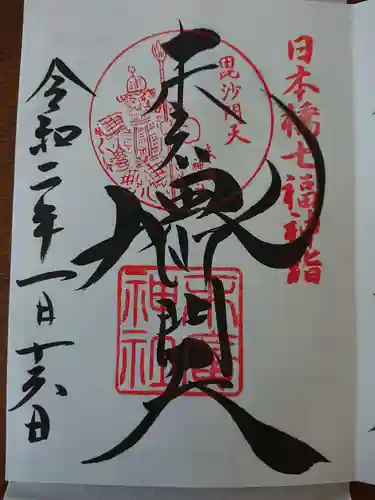 日本橋七福神詣
毘沙門天
末廣
毘沙門天
末廣神社
令和二年一月十六日